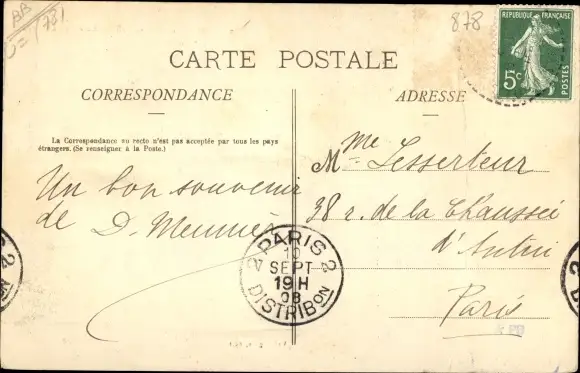 BB
878
RÉPUBLIQUE FRANÇAISE
5c
POSTES
CARTE POSTALE
CORRESPONDANCE
ADRESSE
La Correspondance au recto n'est pas acceptée par tous les pays
étrangers. (Se renseigner à la Poste.)
Un bon souvenir
de D. Meunier
Mme Lesserteur
38 r. de la Chaussée
d'Antin
Paris
PARIS 2
10
SEPT
19H
08
DISTRIBON
2
2